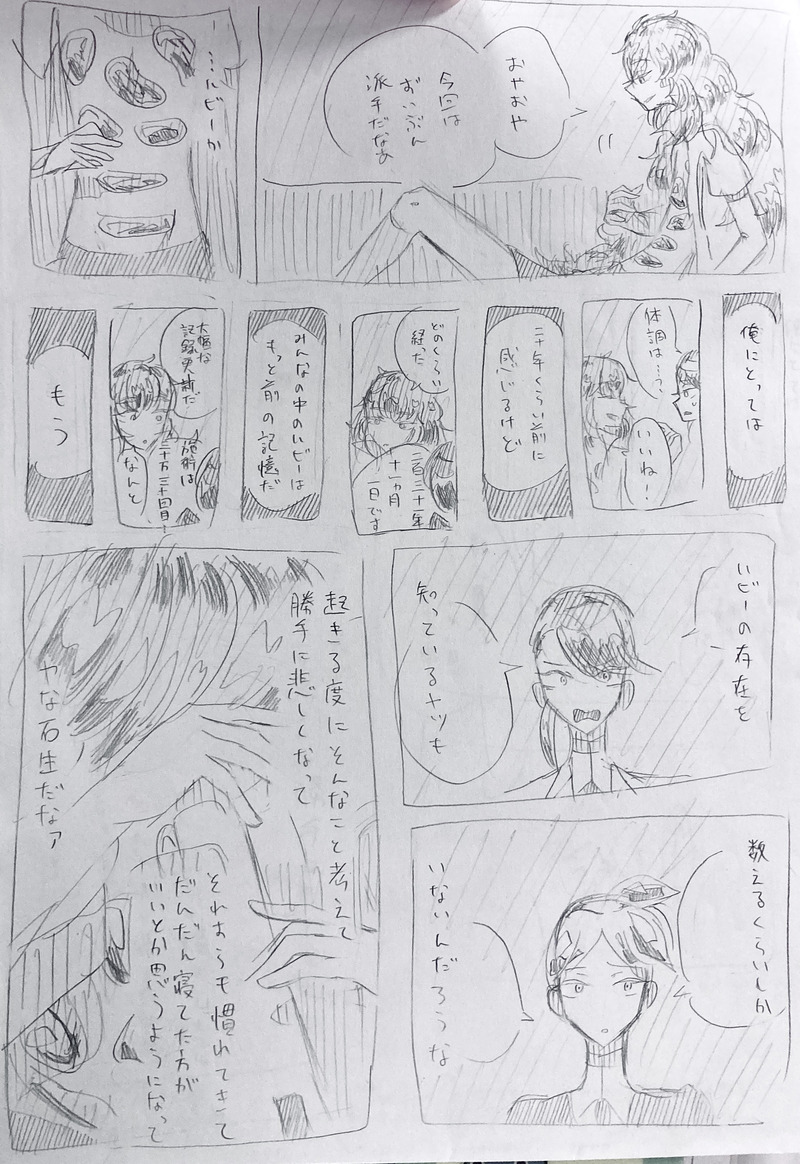 おやおや
今回は
ずいぶん
派手だなあ
…ルビーか
俺にとっては
体調は…?
いいね!
二十年くらい前に
感じるけど
どのくらい
経った
二百三十一年
十一ヵ月
一日です
みんなの中のルビーは
もっと前の記憶だ
大幅な
記録更新だ
施術は
なんと
もう
ルビーの存在を
知っているヤツも
数えるくらいしか
いないんだろうな
起きる度にそんなこと考えて
勝手に悲しくなって
それすらも慣れてきて
だんだん寝てた方が
いいとか思うようになって
ヤな石生だなァ